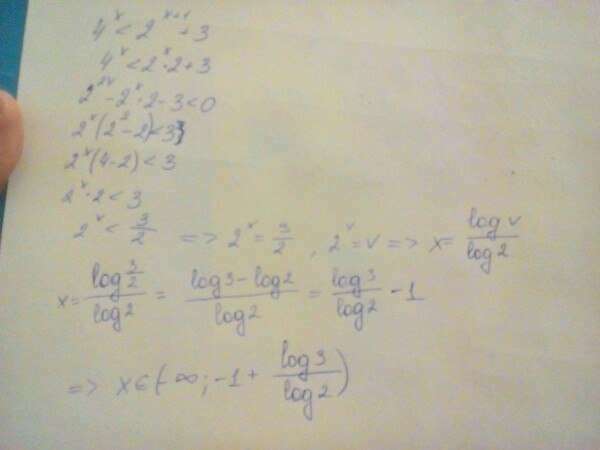 4^x < 2^{x+1} + 3
4^x < 2^x · 2 + 3
2^{2x} - 2^x · 2 - 3 < 0
2^x (2^2 - 2) < 3
2^x (4 - 2) < 3
2^x · 2 < 3
2^x < \frac{3}{2} => 2^x = \frac{3}{2} , 2^x = v => x = \frac{log v}{log 2}
x = \frac{log \frac{3}{2}}{log 2} = \frac{log 3 - log 2}{log 2} = \frac{log 3}{log 2} - 1
=> x ∈ (-∞; -1 + \frac{log 3}{log 2})